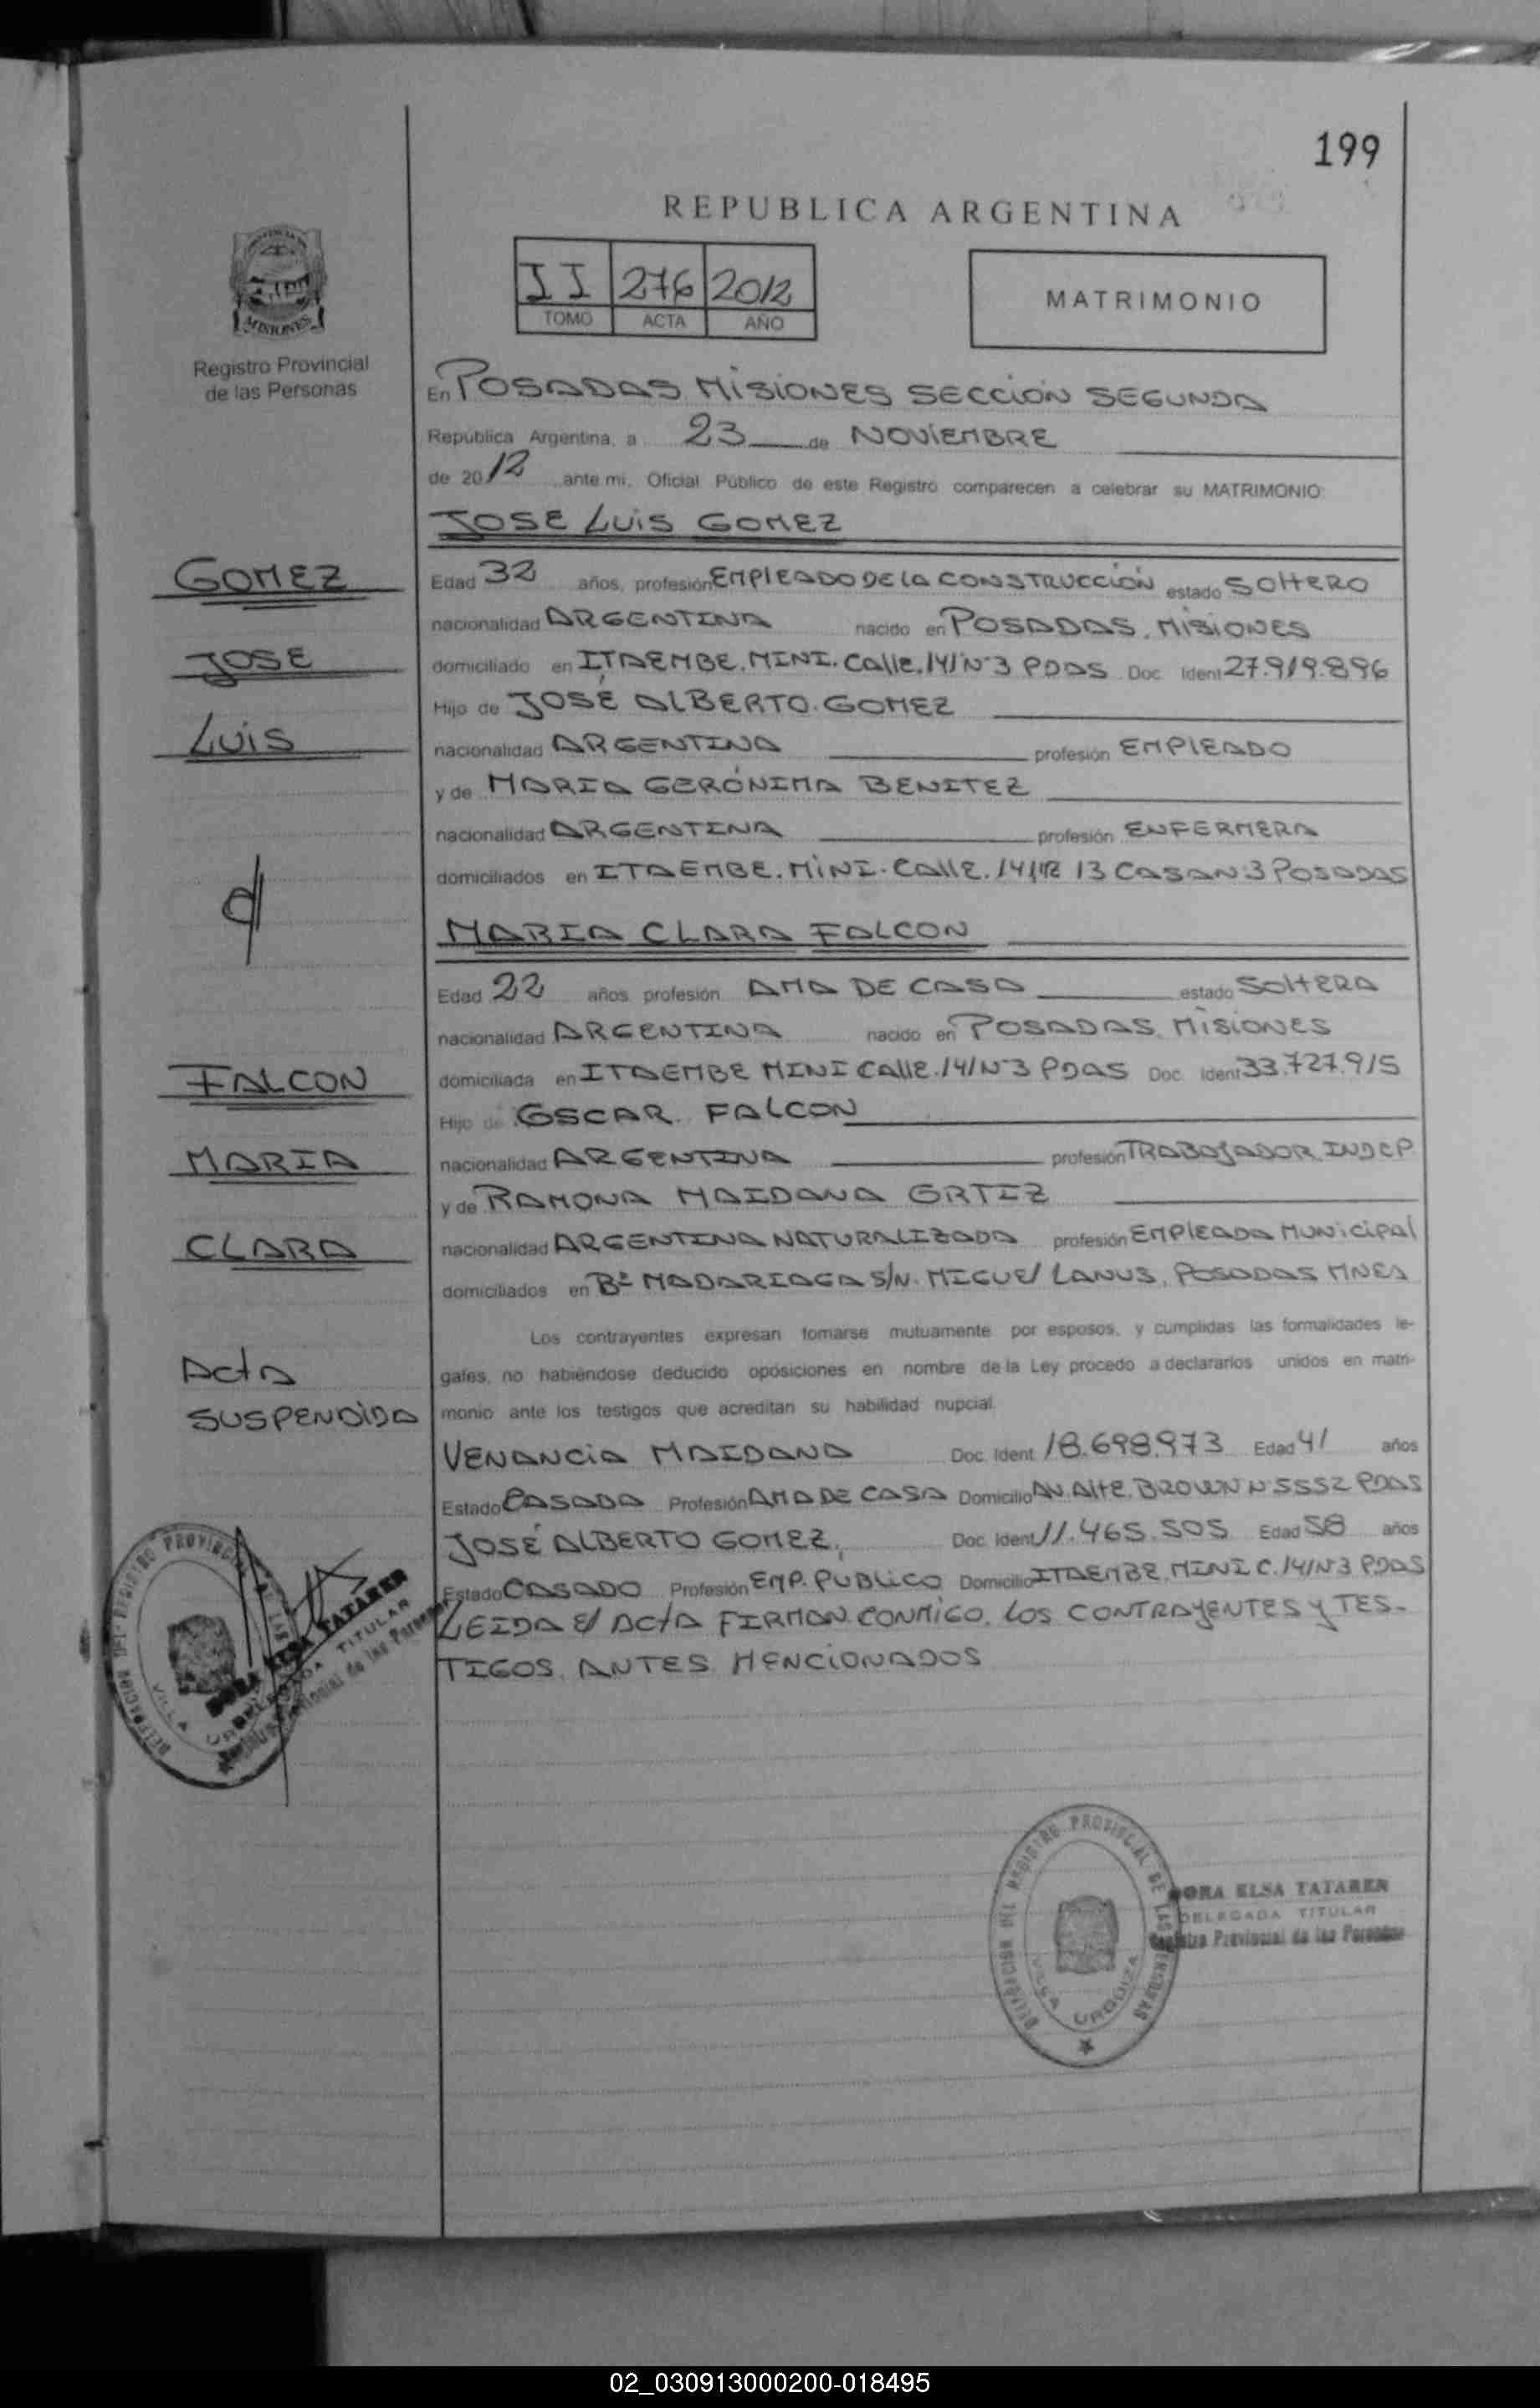 199
REPUBLICA ARGENTINA
II 276 2012
TOMO ACTA AÑO
MATRIMONIO
MISIONES
Registro Provincial
de las Personas
En POSADAS MISIONES SECCIÓN SEGUNDA
República Argentina, a 23 de NOVIEMBRE
de 2012 ante mi, Oficial Público de este Registro comparecen a celebrar su MATRIMONIO:
JOSE LUIS GOMEZ
GOMEZ
JOSE
LUIS
Edad 32 años, profesión EMPLEADO DE LA CONSTRUCCIÓN estado SOLTERO
nacionalidad ARGENTINA nacido en POSADAS. MISIONES
domiciliado en ITAEMBE. MINI. Calle. 141 Nº3 PDAS Doc. Ident 27.919.896
Hijo de JOSÉ ALBERTO. GOMEZ
nacionalidad ARGENTINA profesión EMPLEADO
y de MARIA GERÓNIMA BENITEZ
nacionalidad ARGENTINA profesión ENFERMERA
domiciliados en ITAEMBE. MINI. Calle. 13 CASA Nº3 POSADAS
MARIA CLARA FALCON
Edad 22 años profesión AMA DE CASA estado SOLTERA
nacionalidad ARGENTINA nacido en POSADAS. MISIONES
FALCON
MARIA
CLARA
domiciliada en ITAEMBE MINI Calle. 141 Nº3 PDAS Doc. Ident 33.727.915
Hijo de OSCAR. FALCON
nacionalidad ARGENTINA profesión TRABAJADOR. INDEP.
y de RAMONA MAIDANA ORTIZ
nacionalidad ARGENTINA NATURALIZADA profesión EMPLEADA MUNICIPAL
domiciliados en Bº MADARIAGA S/N. MIGUEL LANUS. POSADAS MNES
Los contrayentes expresan tomarse mutuamente por esposos, y cumplidas las formalidades le-
gales, no habiéndose deducido oposiciones en nombre de la Ley procedo a declararlos unidos en matri-
monio ante los testigos que acreditan su habilidad nupcial.
ACTA
SUSPENDIDA
VENANCIA MAIDANA Doc. Ident. 18.698.973 Edad 41 años
Estado CASADA Profesión AMA DE CASA Domicilio AV. Alte. BROWN Nº 5552 PDAS
JOSÉ ALBERTO GOMEZ, Doc. Ident 11.465.505 Edad 58 años
Estado CASADO Profesión EMP. PUBLICO Domicilio ITAEMBE. MINI C. 141 Nº3 PDAS
LEIDA El ACTA FIRMAN CONMIGO. LOS CONTRAYENTES y TES-
TIGOS. ANTES MENCIONADOS
DELEGACION DEL REGISTRO PROVINCIAL DE LAS
VILLA
DORA ELSA TATAREN
DELEGADA TITULAR
Registro Provincial de las Personas
DELEGACION DEL REGISTRO PROVINCIAL DE LAS PERSONAS
VILLA URQUIZA
DORA ELSA TATAREN
DELEGADA TITULAR
Registro Provincial de las Personas
02_030913000200-018495